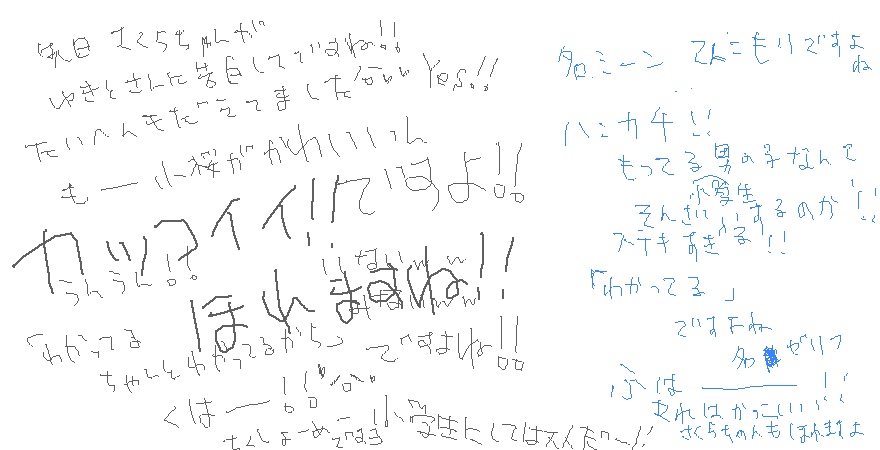 昨日 さくらちゃんが
ゆきとさんに告白してですね!!
たいへんもだえてましたww Yes!!
も——小桜がかわいいん
ですよ!!
カッワイイ!!
うんうん!!
いないww
みないww
ほれますね!!
「わかってる
ちゃんとわかってるから」
ですよね!!
くは——!!
ちくしょーめ
小学生にしてはスイだ〜!!
名シーン てんこもりですよ
ね
ハニカチ!!
もってる男の子なんて
小学生
そんざいするのか!!
ステキすぎる!!
「わかってる」
ですよね
名ゼリフ
ふは———!!
あれはかっこいい
さくらちゃんもほれますよ